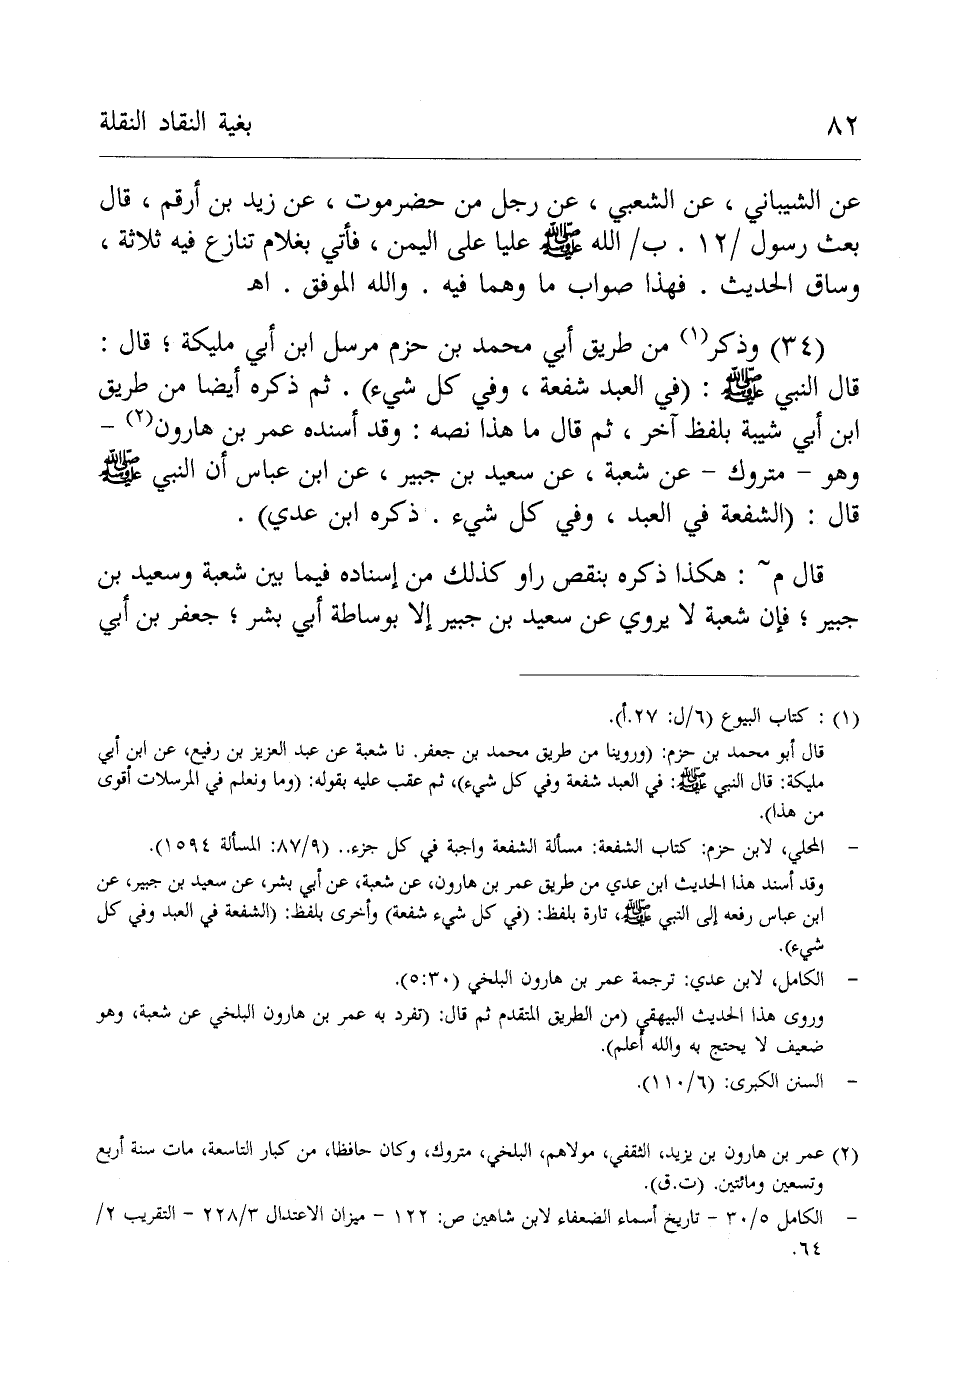 ٨٢ بغية النقاد النقلة
عن الشيباني ، عن الشعبي ، عن رجل من حضرموت ، عن زيد بن أرقم ، قال
بعث رسول /١٢ . ب/ الله ﷺ عليا على اليمن ، فأتي بغلام تنازع فيه ثلاثة ،
وساق الحديث . فهذا صواب ما وهما فيه . والله الموفق . اهـ
(٣٤) وذكر(١) من طريق أبي محمد بن حزم مرسل ابن أبي مليكة ؛ قال :
قال النبي ﷺ : (في العبد شفعة ، وفي كل شيء) . ثم ذكره أيضا من طريق
ابن أبي شيبة بلفظ آخر ، ثم قال ما هذا نصه : وقد أسنده عمر بن هارون(٢) -
وهو - متروك - عن شعبة ، عن سعيد بن جبير ، عن ابن عباس أن النبي ﷺ
قال : (الشفعة في العبد ، وفي كل شيء . ذكره ابن عدي) .
قال م~ : هكذا ذكره بنقص راو كذلك من إسناده فيما بين شعبة وسعيد بن
جبير ؛ فإن شعبة لا يروي عن سعيد بن جبير إلا بوساطة أبي بشر ؛ جعفر بن أبي
(١) : كتاب البيوع (٦/ل: ٢٧.أ).
قال أبو محمد بن حزم: (وروينا من طريق محمد بن جعفر. نا شعبة عن عبد العزيز بن رفيع، عن ابن أبي
مليكة: قال النبي ﷺ: في العبد شفعة وفي كل شيء)، ثم عقب عليه بقوله: (وما ونعلم في المرسلات أقوى
من هذا).
- المحلي، لابن حزم: كتاب الشفعة: مسألة الشفعة واجبة في كل جزء.. (٨٧/٩: المسألة ١٥٩٤).
وقد أسند هذا الحديث ابن عدي من طريق عمر بن هارون، عن شعبة، عن أبي بشر، عن سعيد بن جبير، عن
ابن عباس رفعه إلى النبي ﷺ، تارة بلفظ: (في كل شيء شفعة) وأخرى بلفظ: (الشفعة في العبد وفي كل
شيء).
- الكامل، لابن عدي: ترجمة عمر بن هارون البلخي (٥:٣٠).
وروى هذا الحديث البيهقي (من الطريق المتقدم ثم قال: (تفرد به عمر بن هارون البلخي عن شعبة، وهو
ضعيف لا يحتج به والله أعلم).
- السنن الكبرى: (١١٠/٦).
(٢) عمر بن هارون بن يزيد، الثقفي، مولاهم، البلخي، متروك، وكان حافظا، من كبار التاسعة، مات سنة أربع
وتسعين ومائتين. (ت.ق).
- الكامل ٣٠/٥ - تاريخ أسماء الضعفاء لابن شاهين ص: ١٢٢ - ميزان الاعتدال ٢٢٨/٣ - التقريب ٢/
٦٤.